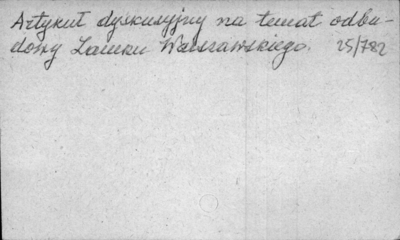 Artykuł dyskusyjny na temat odbu-
dowy Zamku Warszawskiego. 25/782